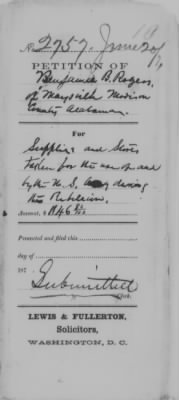 No. 2757. June 20/71
PETITION OF
Benjamin B. Rogers,
of Maysville Madison
County Alabama.
For
Supplies and Stores
taken for the use of and
by the U.S. Army during
the Rebellion.
Amount, $ 1846
Presented and filed this
day of
187
Submitted
Clerk.
LEWIS & FULLERTON,
Solicitors,
WASHINGTON, D. C.